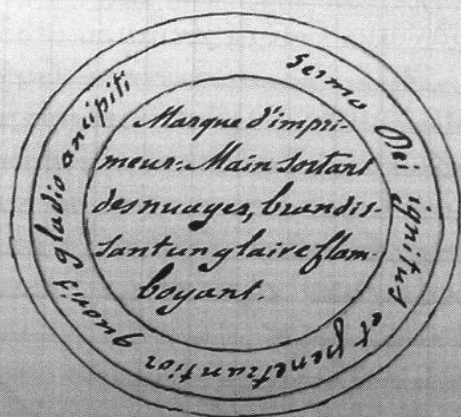 Sermo Dei ignitus et penetrantior quovis gladio ancipiti
Marque d'impri-
meur: Main sortant
des nuages, brandis-
sant un glaive flam-
boyant.